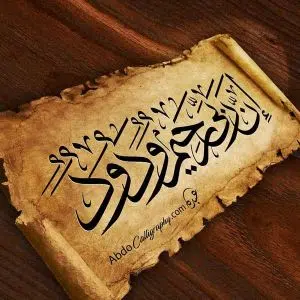 إن ربي رحيم ودود
AbdoCalligraphy.com